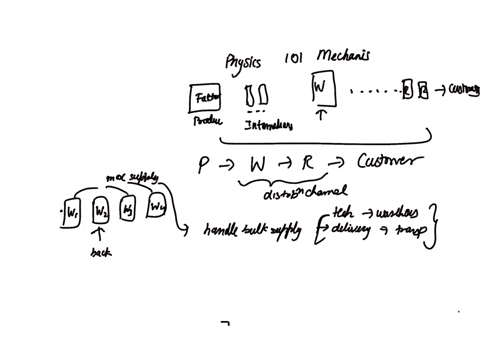 Physics 101 Mechanis
Factor
W
R R → Customers
Produc
P → W → R → Customer
distribn channel
max supply
W1 W2 W3 W4
back
handle bulk supply
tech → warehous
→ delivery → transp